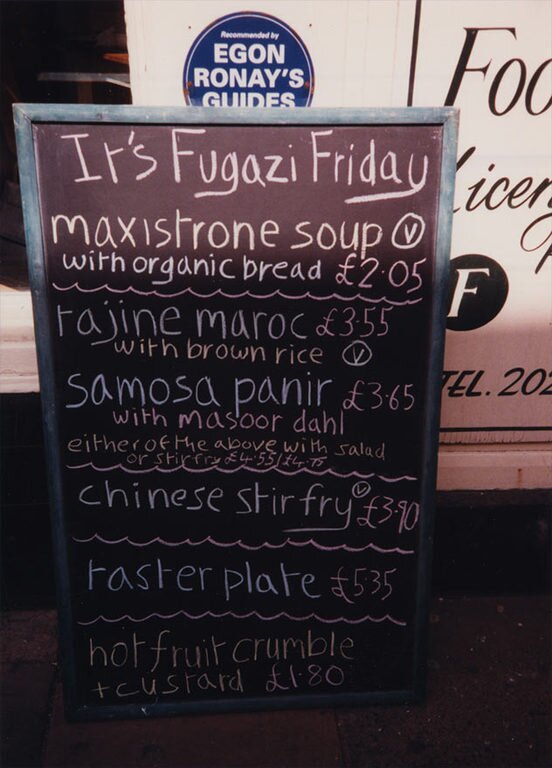 Recommended by
EGON
RONAY'S
GUIDES
It's Fugazi Friday
maxistrone soup V
with organic bread £2.05
tajine maroc £3.55
with brown rice V
samosa panir £3.65
with masoor dahl
either of the above with salad
or stirfry £4.55/£4.75
chinese stirfry V £3.90
taster plate £535
hot fruit crumble
+ custard £1.80
Foo
Licen
F
TEL. 202